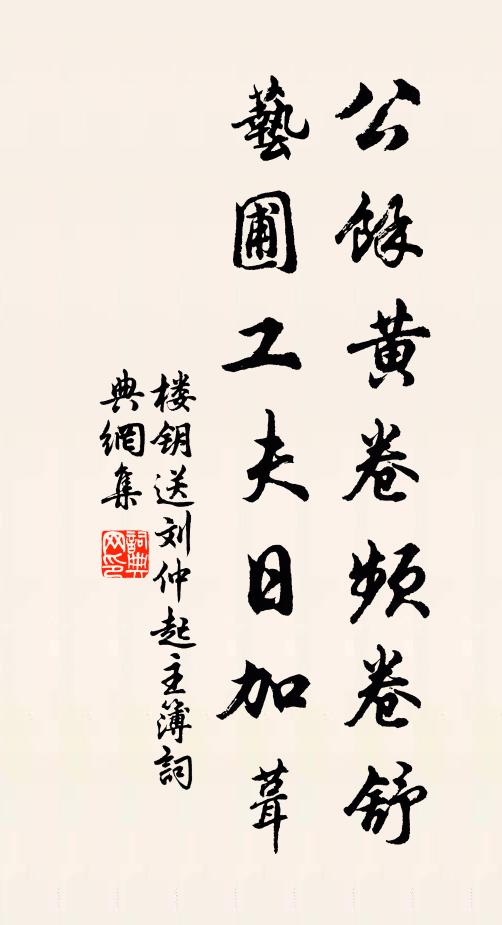 公餘黄卷頻卷舒
藝圃工夫日加葺
楼钥送刘仲起主簿詞
典網集
詞典
网印